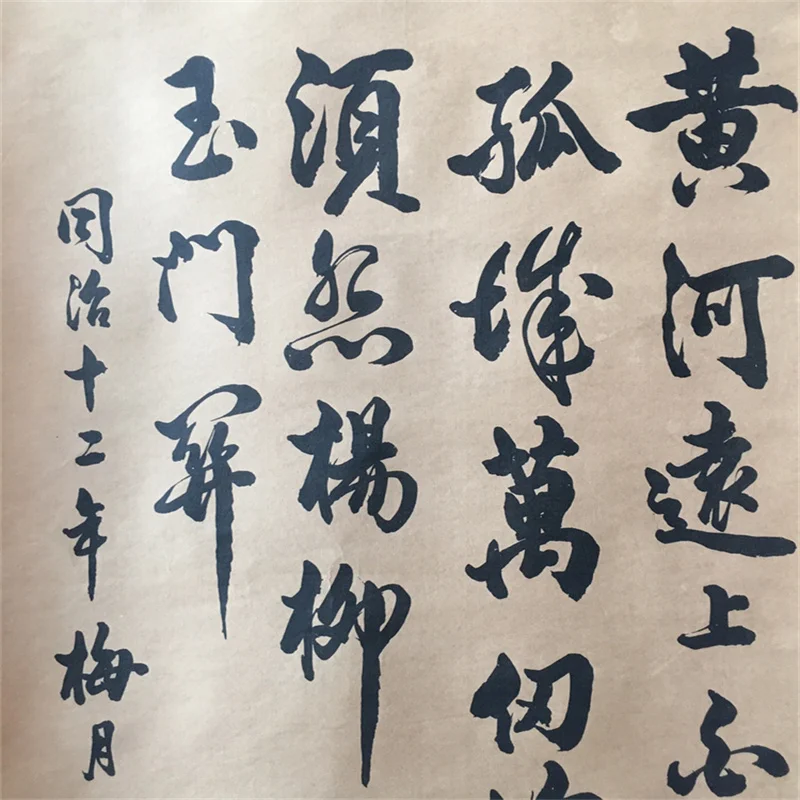 黃河遠上白
孤城萬仞
須怨楊柳
玉門關
同治十二年梅月